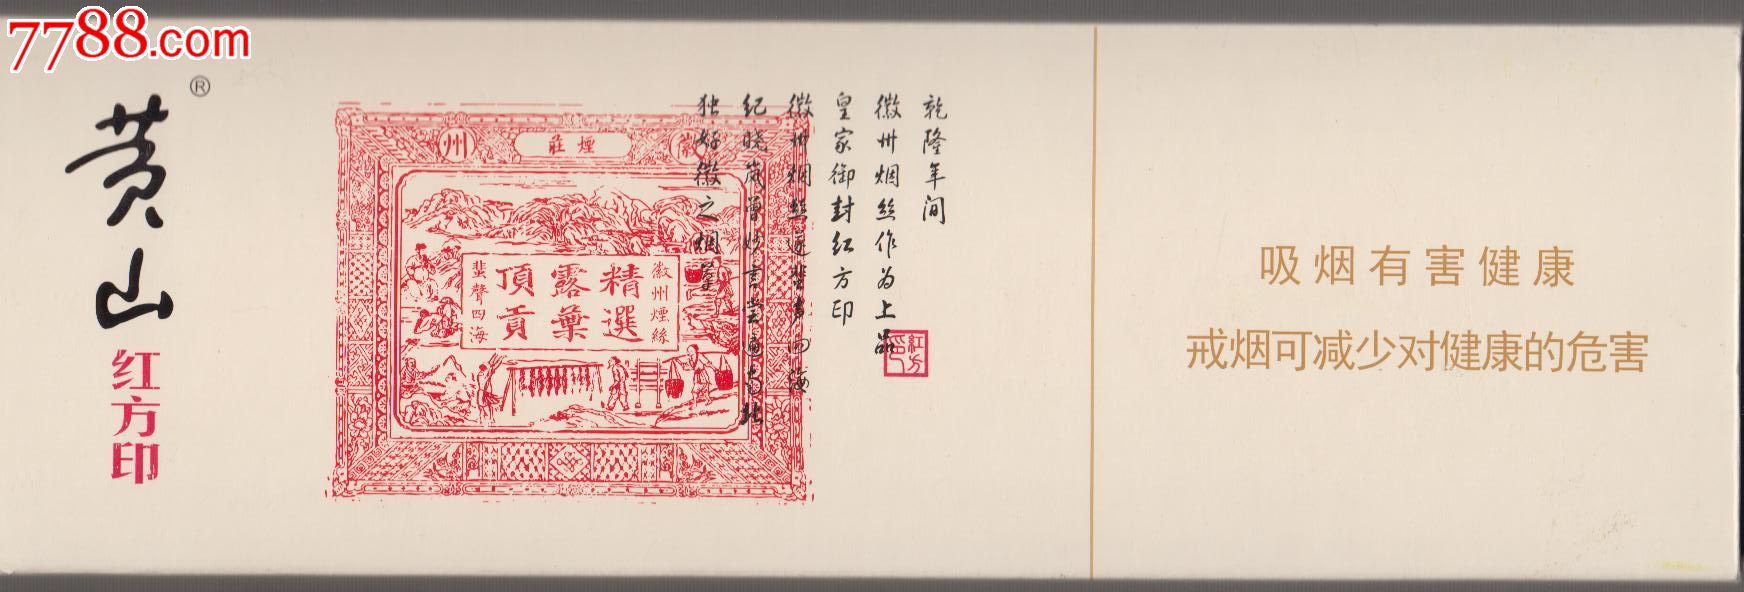 7788.com
黄山
®
红方印
乾隆年间
徽州烟丝作为上品
皇家御封红方印
徽州烟丝遂蜚声四海
纪晓岚曾
独好徽之烟
紅方印
州 莊煙 徽
徽州煙絲
精選
露葉
頂貢
蜚聲四海
吸烟有害健康
戒烟可减少对健康的危害